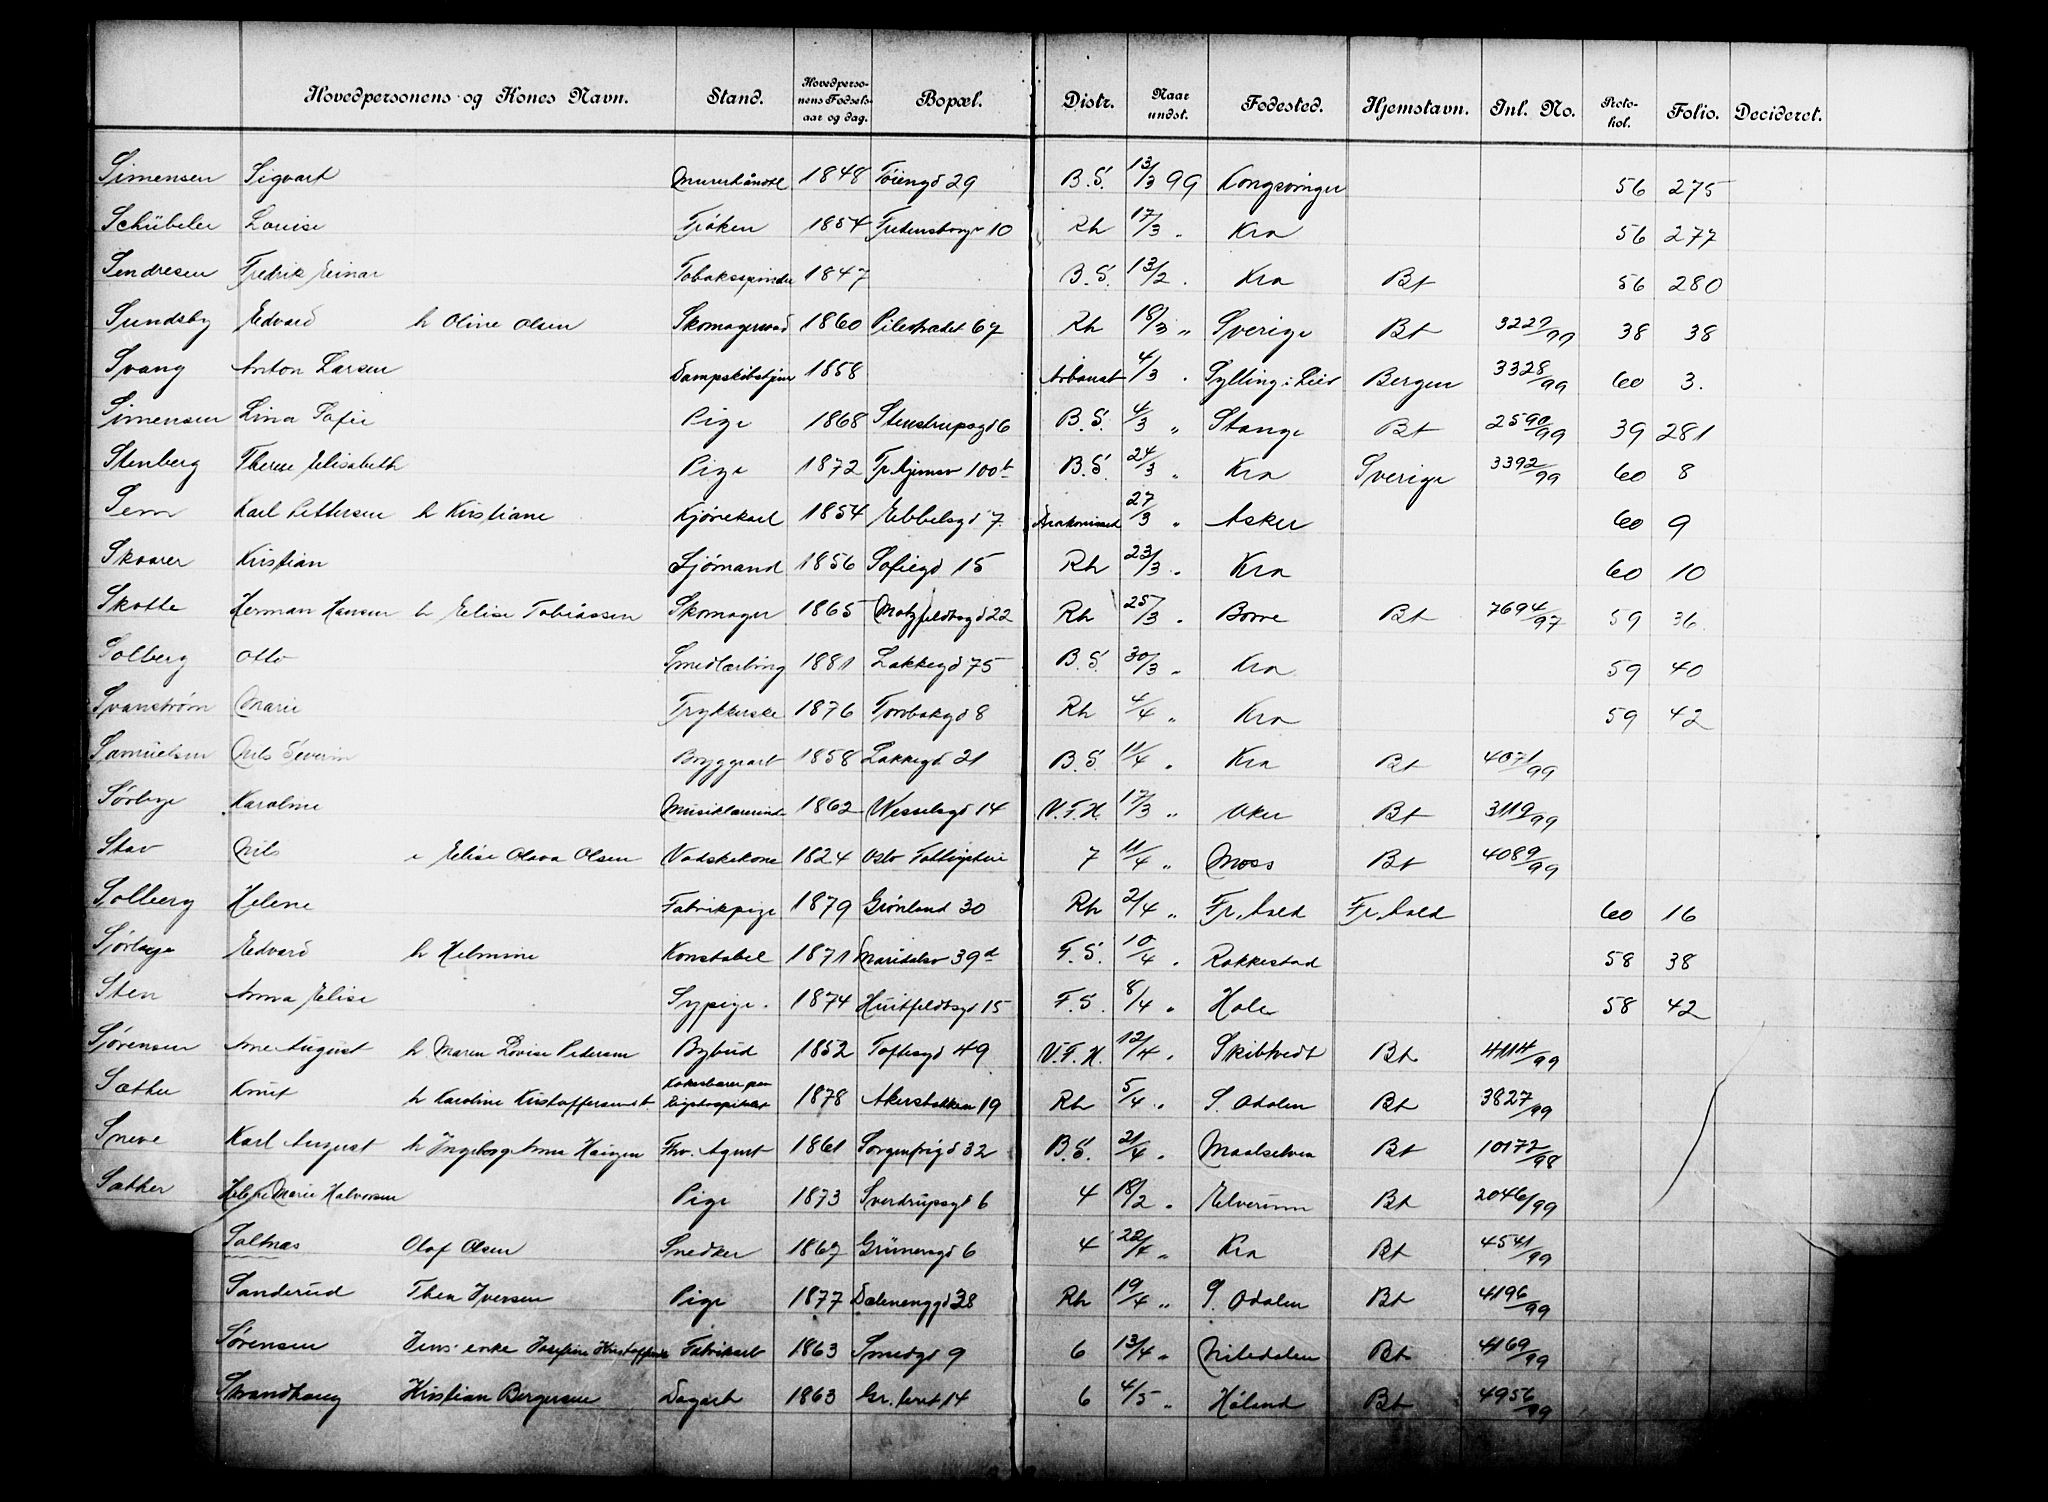 Hovedpersonens og Kones Navn. Stand. Hovedperso-nens Fødsels-aar og dag. Bopæl. Distr. Naar undst. Fødested. Hjemstavn. Inl. No. Proto-kol. Folio. Decideret.
Simensen Sigvart Murerhåndtl 1848 Töiengd 29 B.S. 13/3 99 Kongsvinger 56 275
Schübeler Louise Fröken 1854 Fredensborgv 10 Rh 17/3 " Kra 56 277
Sendresen Fredrik Einar Tobaksspinder 1847 B.S. 13/2 " Kra Bt 56 280
Sundsby Edvard h Oline Olsen Skomagersvd 1860 Pilestrædet 67 Rh 18/3 " Sverige Bt 3229/99 38 38
Svang Anton Larsen Dampskibstjen 1858 4/3 " Sylling i Lier Bergen 3328/99 60 3.
Simensen Lina Sofie Pige 1868 Stenstrupsgd 6 B.S. 4/3 " Stange Bt 2590/99 39 281
Stenberg Therese Elisabeth Pige 1872 Trhjemsv 100b B.S. 24/3 " Kra Sverige 3392/99 60 8
Sem Karl Pettersen h Kristiane Kjörekarl 1854 Ebbelsgd 7. 27/3 " Asker 60 9
Skaarer Kristian Sjömand 1856 Sofiegd 15 Rh 23/3 " Kra 60 10
Skotte Herman Hansen h Elise Tobiassen Skomager 1865 Motzfeldtsgd 22 Rh 25/3 " Borre Bt 7694/97 59 36.
Solberg Otto Smedlærling 1881 Lakkegd 75 B.S. 30/3 " Kra 59 40
Svanström Marie Trykkerske 1876 Torvbakgd 8 Rh 4/4 " Kra 59 42
Samuelsen Nils Severin Bryggearb 1858 Lakkegd. 21 B.S. 11/4 " Kra Bt 4071/99
Sörbye Karoline Musiklærerinde 1862 Wesselsgd 14 V.F.H. 17/3 " Aker Bt 3119/99
Stav Nils e Elise Olava Olsen Vadskekone 1824 Oslo Fattigstue 7 11/4 " Moss Bt 4089/99
Solberg Helene Fabrikpige 1879 Grönland 30 Rh 2/4 " Fr.hald Fr.hald 60 16
Sjörbye Edvard h Helmine Konstabel 1871 Maridalsv 39d F.S. 10/4 " Rakkestad 58 38
Sten Anna Elise Sypige. 1874 Huitfeldtsgd 15 F.S. 8/4 " Hole 58 42
Sjörensen Arne August h Maren Lovise Pedersen Bybud 1852 Toftesgd 49 V.F.H. 12/4 " Skibtvedt Bt 4114/99
Sæther Knut h Karoline Kristoffersensd. Kokesbærer paa Rigshospitalet 1878 Akersbakken 19 Rh 5/4 " S. Odalen Bt 3827/99
Sneve Karl August h Ingeborg Anna Haugen Fhv. Agent 1861 Sorgenfrigd 32 B.S. 21/4 " Maalselven Bt 10172/98
Sæther Helene Marie Halvorsen Pige 1873 Sverdrupsgd 6 4 18/2 " Elverum Bt 2046/99
Saltnæs Olaf Olsen Snedker 1867 Grünersgd 6 4 22/4 " Kra Bt 4541/99
Sanderud Thea Iversen Pige 1877 Dælenenggd 38 Rh 19/4 " S. Odalen Bt 4196/99
Sörensen Jens' enke Josefine Kristoffersen Fabrikarb 1863 Smedgd 9 6 13/4 " Nitedalen Bt 4169/99
Strandhaug Kristian Bergersen Dagarb 1863 Gr. leret 14 6 4/5 " Höland Bt 4956/99